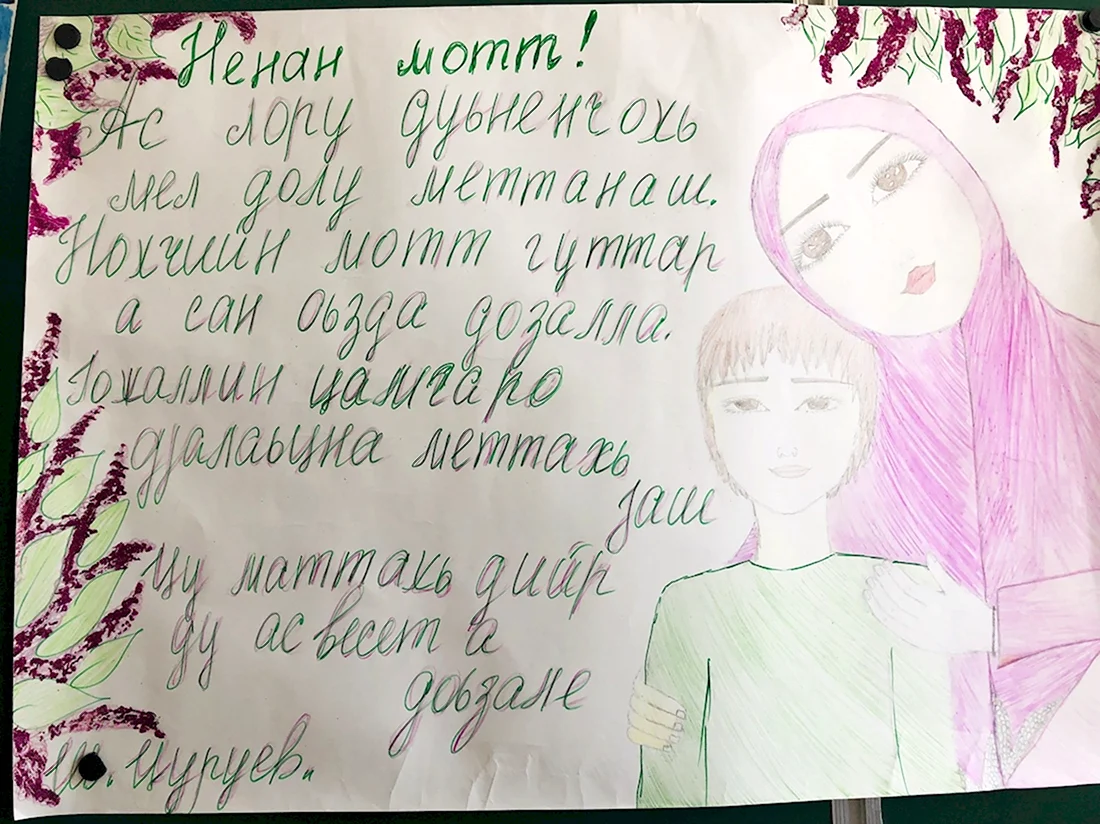 Ненан мотт!
Ас лору дуьненчохь
мел долу меттанаш.
Нохчийн мотт гуттар
а сан оьзда дозалла.
Іожаллин цамгаро
дӀалаьцна меттахь
Ӏаш
Цу маттахь дийр
ду ас весет а
доьзале
Ш. Цуруев.